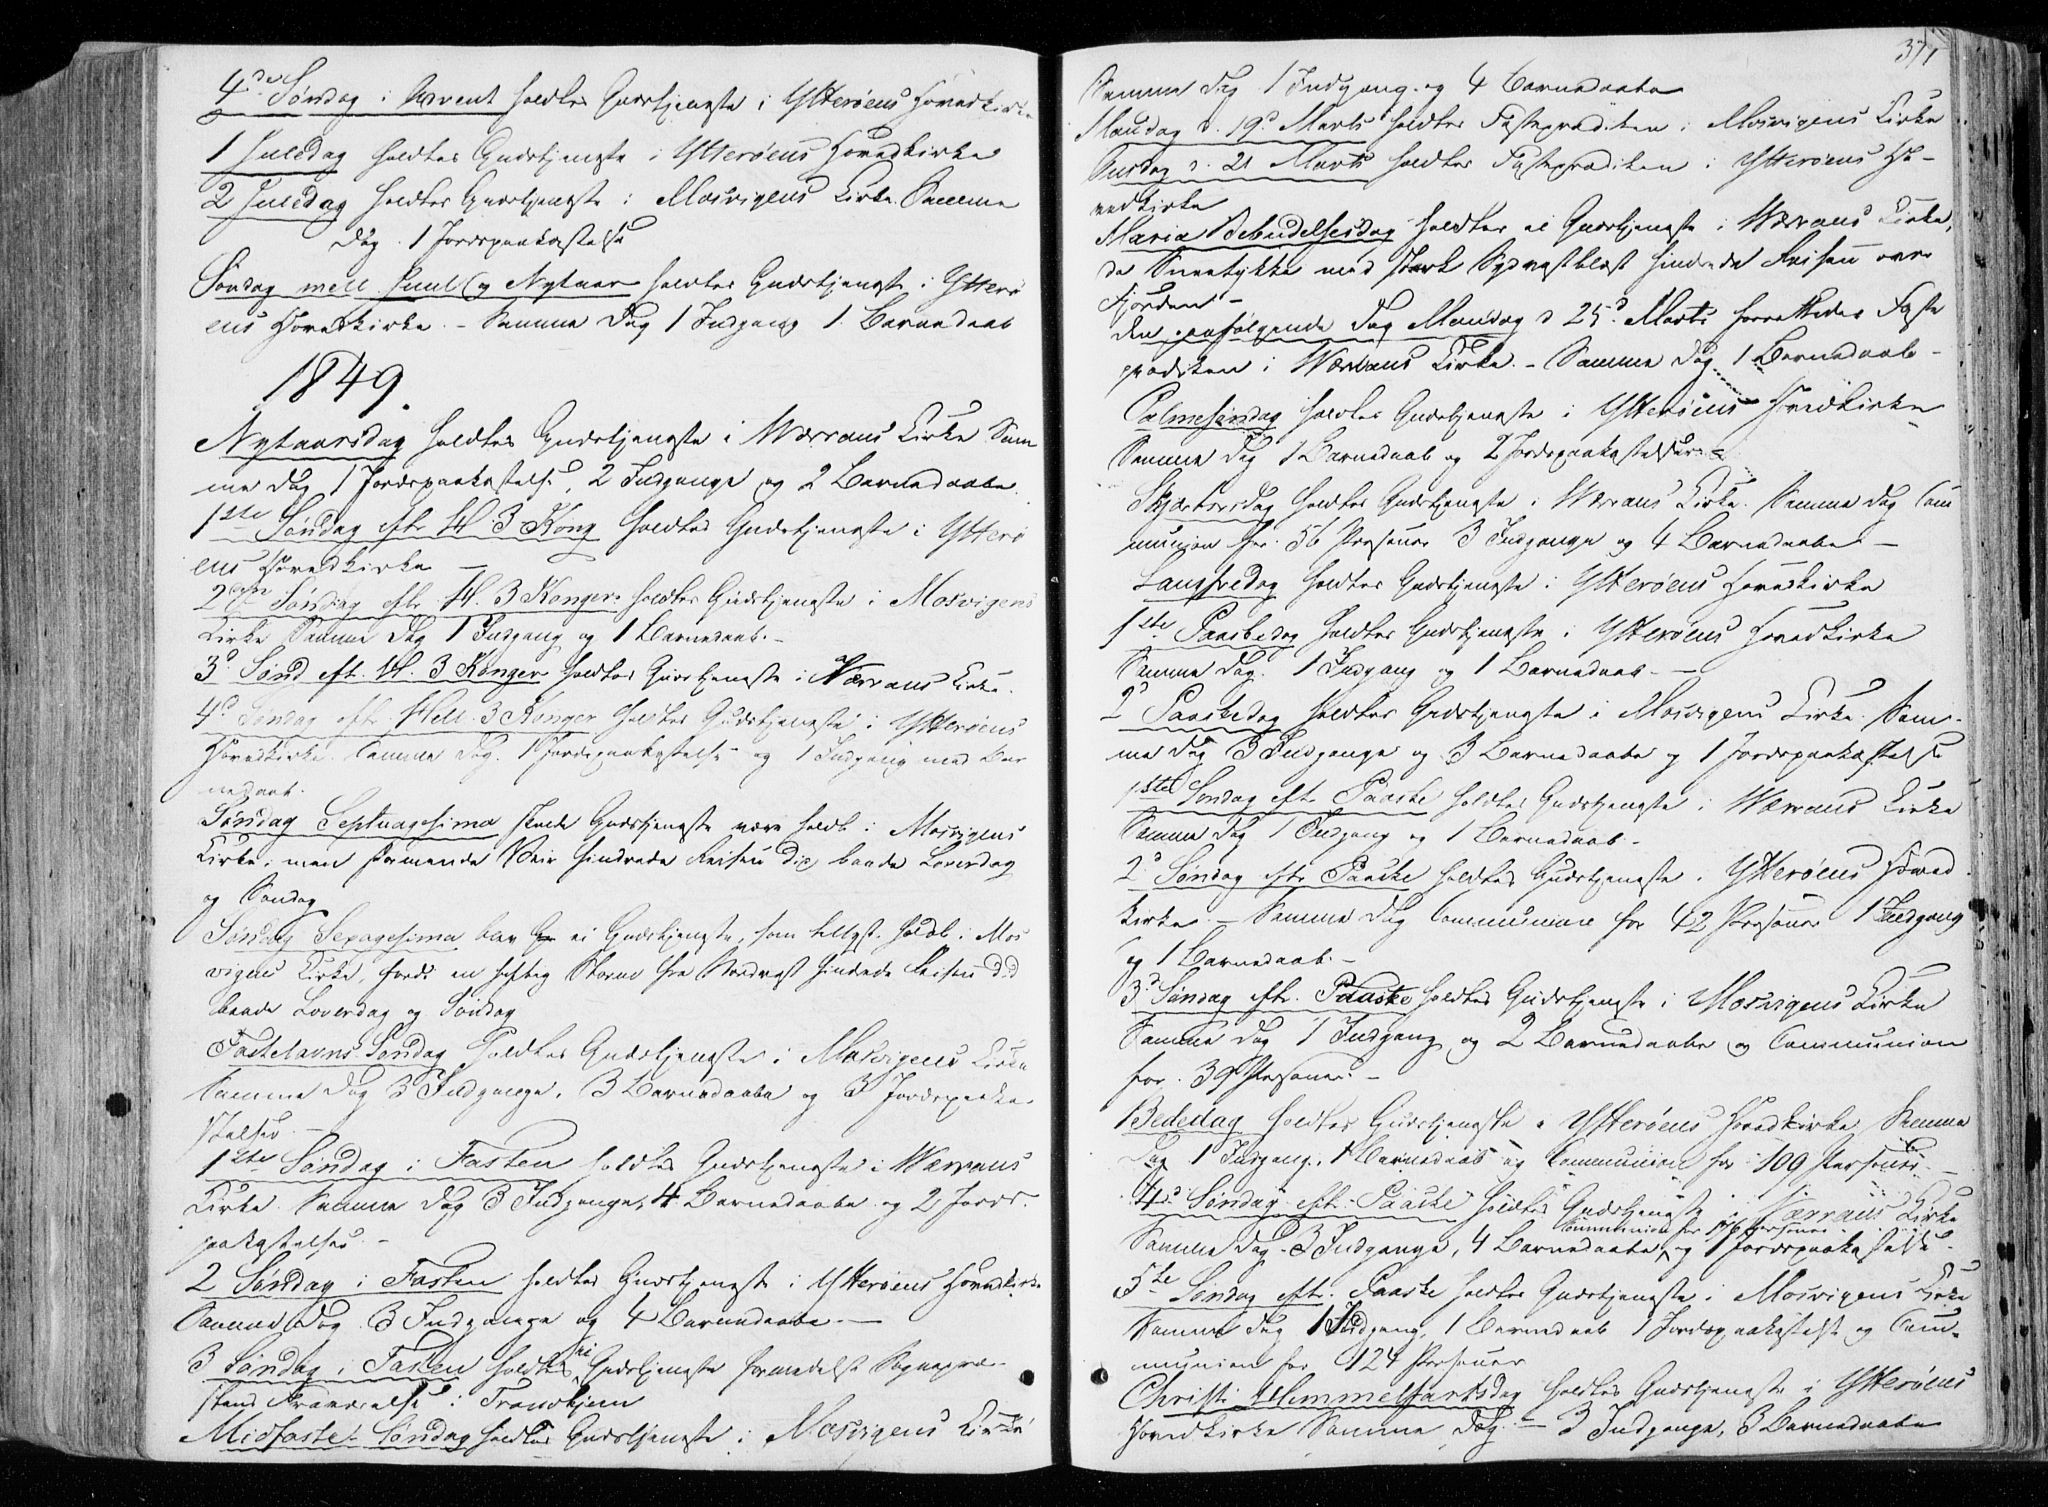 4de Søndag i Advent holdtes Gudstjeneste i Ytterøens Hovedkirke
1 Juledag holdtes Gudstjeneste i Ytterøens Hovedkirke
2 Juledag holdtes Gudstjeneste i Mosvigens Kirke. Samme
Dag 1 Jordspaakastelse
Søndag mell. Juul og Nytaar holdtes Gudstjeneste i Ytterø
ens Hovedkirke. - Samme Dag 1 Indgang 1 Barnedaab
1849.
Nytaarsdag holdtes Gudstjeneste i Werrans Kirke Sam
me Dag 1 Jordspaakastelse, 2 Indgange og 2 Barnedaabe.
1ste Søndag eftr H. 3 Kong holdtes Gudstjeneste i Ytterø
ens Hovedkirke -
2den Søndag eftr. H. 3 Konger holdtes Gudstjeneste i Mosvigens
Kirke Samme Dag 1 Indgang og 1 Barnedaab. -
3d Sønd eft. H. 3 Konger holdtes Gudstjeneste i Werrans Kirke.
4d Søndag eftr. Hell. 3 Konger holdtes Gudstjeneste i Ytterøens
Hovedkirke. Samme Dag. 1 Jordspaakastelse og 1 Indgang med Bar
nedaab.
Søndag Septuagesima skulde Gudstjeneste være holdt i Mosvigens
Kirke, men stormende Veir hindrede Reisen did baade Løverdag
og Søndag
Søndag Sexagesima blev ei Gudstjeneste, som tillyst. holdt i Mos
vigens Kirke, fordi en heftig Storm fra Nordvest hindrede Reisen did
baade Løverdag og Søndag
Fastelavns Søndag holdtes Gudstjeneste i Mosvigens Kirke
Samme Dag 3 Indgange, 3 Barnedaabe og 3 Jordspaaka
stelser. -
1ste Søndag i Fasten holdtes Gudstjeneste i Werrans
Kirke. Samme Dag 3 Indgange, 4 Barnedaabe og 2 Jords-
paakastelser. -
2 Søndag i Fasten holdtes Gudstjeneste i Ytterøens Hovedkirke
Samme Dag 3 Indgange og 4 Barnedaabe. -
3 Søndag i Fasten holdtes ei Gudstjeneste formedelst Sognepræ-
stens Fraværelse i Trondhjem
Midfaste- Søndag holdtes Gudstjeneste i Mosvigens Kirke
371
Samme Dag 1 Indgang og 4 Barnedaabe
Mandag d. 19d Marts holdtes Fasteprædiken i Mosvigens Kirke
Onsdag d. 21 Marts holdtes Fasteprædiken i Ytterøens Ho-
vedkirke
Maria Bebudelsesdag holdtes ei Gudstjeneste i Werrans Kirke,
da Sneetykke med stærk Sydvestblæst hindrede Reisen over
Fjorden -
den paafølgende Dag Mandag d 25d Marts forrettedes Faste
prædiken i Werrans Kirke. - Samme Dag 1 Barnedaab -
Palmesøndag holdtes Gudstjeneste i Ytterøens Hovedkirke
Samme Dag 1 Barnedaab og 2 Jordspaakastelser -
Skjærtorsdag holdtes Gudstjeneste i Werrans Kirke. Samme Dag Com
munion for 56 Personer 3 Indgange og 4 Barnedaabe -
Langfredag holdtes Gudstjeneste i Ytterøens Hovedkirke
1ste Paaskedag holdtes Gudstjeneste i Ytterøens Hovedkirke
Samme Dag. 1 Indgang og 1 Barnedaab. -
2d Paaskedag holdtes Gudstjeneste i Mosvigens Kirke Sam-
me Dag 3 Indgange og 3 Barnedaabe og 1 Jordspaakastelse
1ste Søndag eftr Paaske holdtes Gudstjeneste i Werrans Kirke
Samme Dag 1 Indgang og 1 Barnedaab. -
2d Søndag eftr Paaske holdtes Gudstjeneste i Ytterøens Hoved
kirke. - Samme Dag Communion for 42 Personer 1 Indgang
og 1 Barnedaab. -
3d Søndag eftr. Paaske holdtes Gudstjeneste i Mosvigens Kirke
Samme Dag 1 Indgang og 2 Barnedaabe og Communion
for. 39 Personer. -
Bededag holdtes Gudstjeneste i Ytterøens Hovedkirke Samme
Dag 1 Indgang, 1 Barnedaab og Communion for 109 Personer. -
4d Søndag eftr. Paaske holdtes Gudstjeneste i Værrans Kirke
Communion for 176 Personer
Samme Dag 3 Indgange, 4 Barnedaabe, og 1 Jordspaakastelse.
5te Søndag eftr. Paaske holdtes Gudstjeneste i Mosvigens Kirke
Samme Dag 1 Indgang, 1 Barnedaab 1 Jordspaakastelse og Com-
munion for 124 Personer
Christi Himmelfartsdag holdtes Gudstjeneste i Ytterøens
Hovedkirke Samme Dag. - 3 Indgange, 3 Barnedaabe